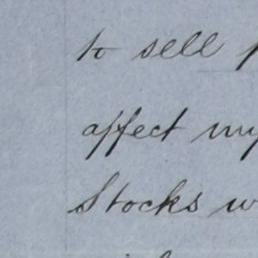 to sell
affect my
Stocks w